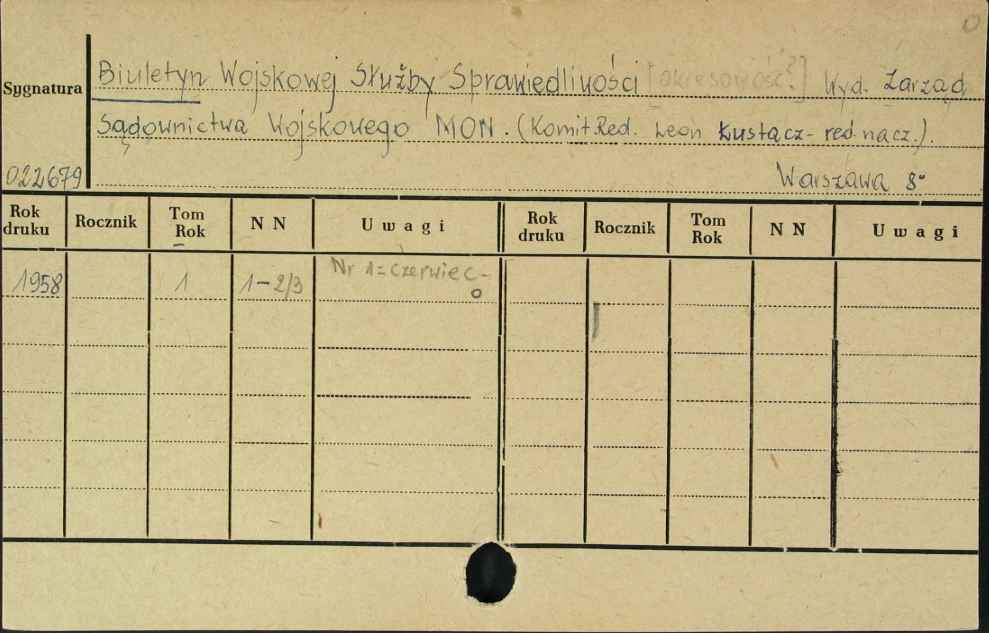 0
Biuletyn Wojskowej Służby Sprawiedliwości [okresowość?] Wyd. Zarząd
Sygnatura
Sądownictwa Wojskowego MON. (Komit.Red. Leon Łustącz - red. nacz.).
022679
Warszawa 8°
Rok druku Rocznik Tom Rok NN Uwagi Rok druku Rocznik Tom Rok NN Uwagi
1958 1 1-2/3 Nr 1=czerwiec-
o